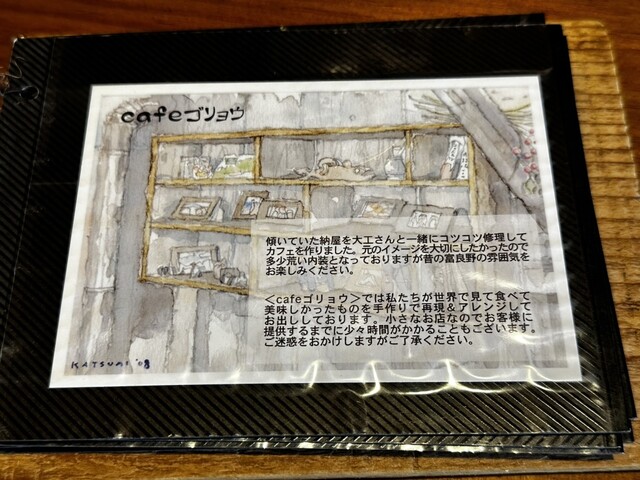 cafeゴリョウ
傾いていた納屋を大工さんと一緒にコツコツ修理して
カフェを作りました。元のイメージを大切にしたかったので
多少荒い内装となっておりますが昔の富良野の雰囲気を
お楽しみください。
＜cafeゴリョウ＞では私たちが世界で見て食べて
美味しかったものを手作りで再現＆アレンジして
お出ししております。小さなお店なのでお客様に
提供するまでに少々時間がかかることもございます。
ご迷惑をおかけしますがご了承ください。
KATSUMI '08